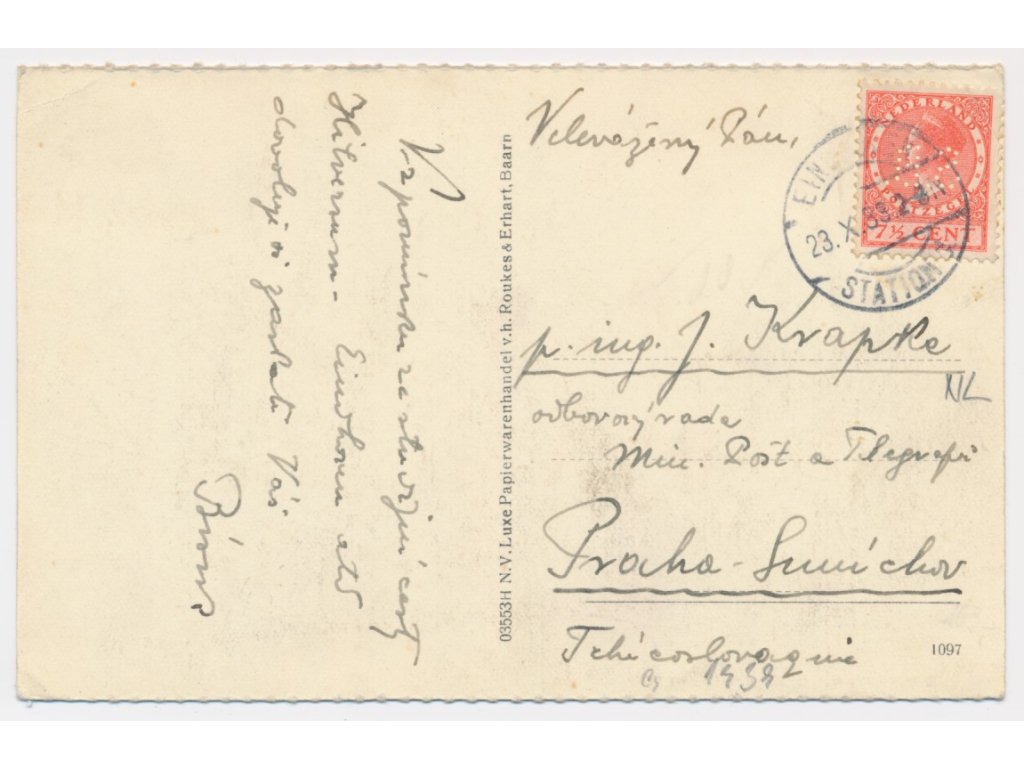 Velevážený Páne,
Vzpomínku ze studijní cesty
Hilversum - Eindhoven atd
dovoluji si zaslati Váš
03553H N.V. Luxe Papierwarenhandel v.h. Roukes & Erhart, Baarn
NEDERLAND
POSTZEGEL
7½ CENT
EIN
23.X.38 2-
STATION
p. ing. J. Krapke
NL
odborový rada
Min. Pošt a Telegrafů
Praha - Smíchov
Tchécoslovaquie
1097